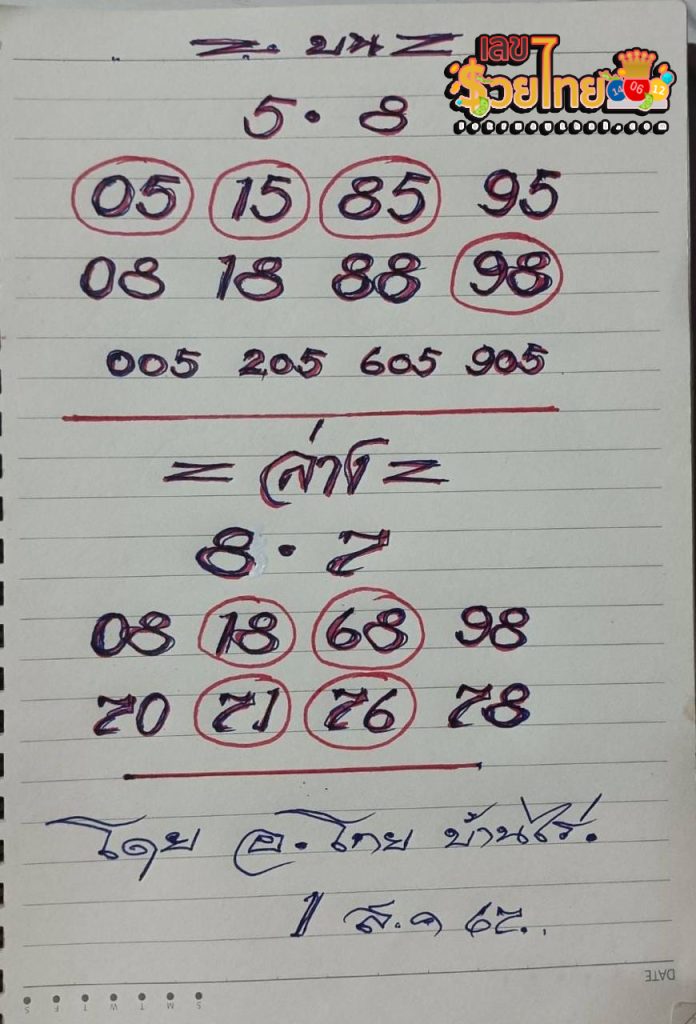 = . บน =
เลข 7
รวยไทย
14 06 12
5 . 8
05 15 85 95
08 18 88 98
005 205 605 905
= ล่าง =
8 . 7
08 18 68 98
70 71 76 78
โดย อ. โทย บ้านไร่.
1 ส.ค 67..
DATE
S M T W T F S